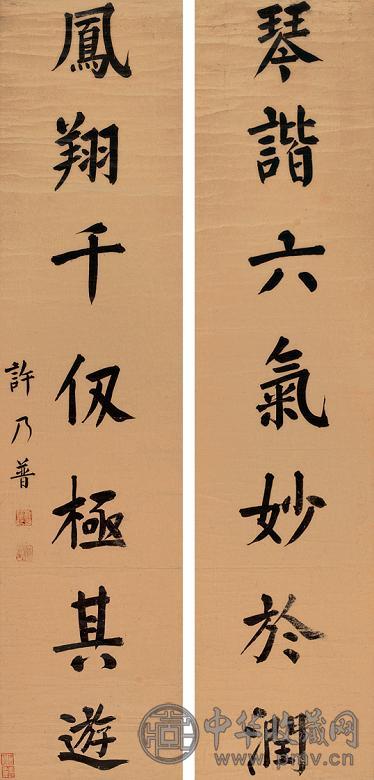 琴諧六氣妙於潤
鳳翔千仞極其遊
許乃普
中华收藏网
www.pmv.cn